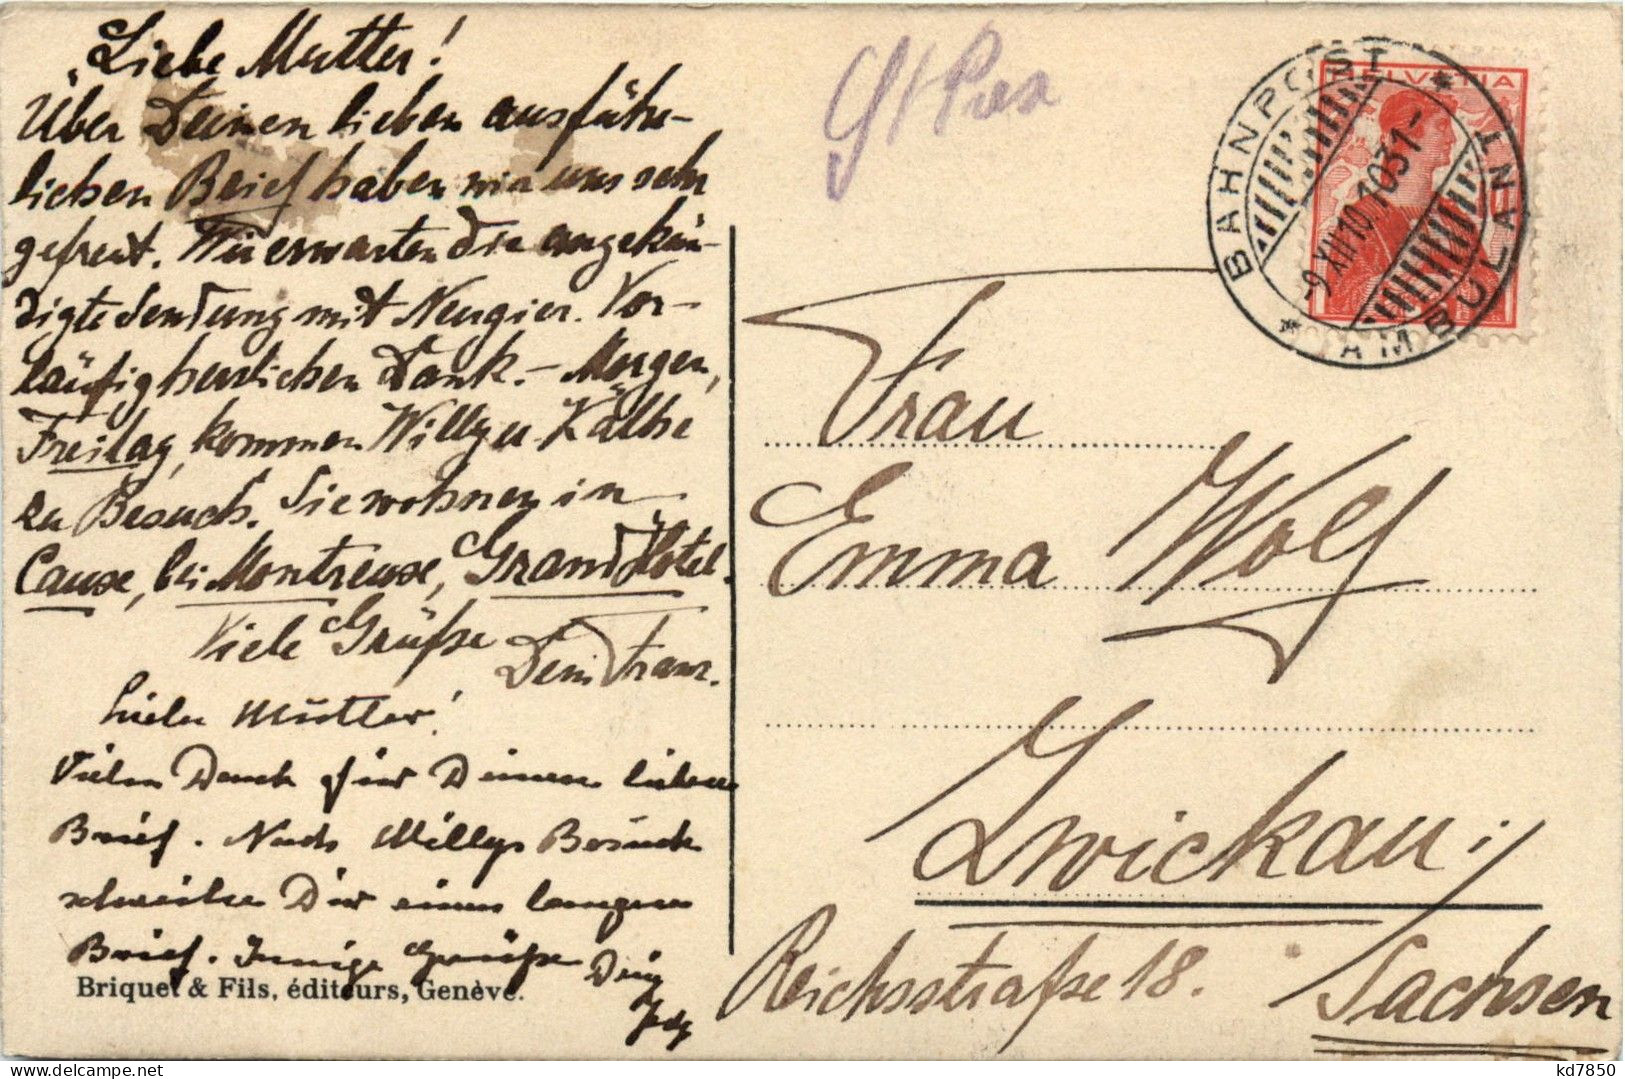 Liebe Mutter!
Über Deinen lieben ausführ-
lichen Brief haben wir uns sehr
gefreut. Wir erwarten die angekün-
digte Sendung mit Neugier. Vor-
läufig herzlichen Dank. – Morgen,
Freitag, kommen Willy u. Käthe
zu Besuch. Sie wohnen in
Cause, bei Montreuse, Grand Hotel.
Viele Grüße
Dein Franz.
Liebe Mutter!
Vielen Dank für Deinen lieben
Brief. Nach Willys Besuch
schreibe Dir einen langen
Brief. Innige Grüße
Briquet & Fils, éditeurs, Genève.
St Prex
HELVETIA
BAHNPOST
AMBULANT
-9.XII.10.
Frau
Emma Wolf
Zwickau i/
Sachsen
Reichsstraße 18.
kd7850